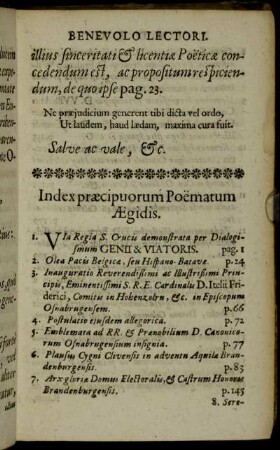 BENEVOLO LECTORI.
illius sinceritati & licentiæ Poëticæ con-
cedendum est, ac propositum respicien-
dum, de quo ipse pag. 23.
Ne præjudicium generent tibi dicta vel ordo,
Ut laudem, haud lædam, maxima cura fuit.
Salve ac vale, &c.
Index præcipuorum Poëmatum
Ægidis.
1. VIa Regia S. Crucis demonstrata per Dialogi-
smum GENII & VIATORIS. pag. 1
2. Olea Pacis Belgicæ, seu Hispano-Batavæ. p. 24
3. Inauguratio Reverendissimi ac Illustrissimi Prin-
cipis, Eminentissimi S. R. E. Cardinalis D. Itelii Fri-
derici, Comitis in Hohenzobrn, &c. in Episcopum
Osnabrugensem. p. 66
4. Postulatio ejusdem allegorica. p. 72
5. Emblemata ad RR. & Prænobilium D. Canonico-
rum Osnabrugensium insignia. p. 77
6. Plausus Cygni Clivensis in adventu Aquilæ Bran-
denburgensis. p. 83
7. Arx gloriæ Domus Electoralis, & Castrum Honoris
Brandenburgensis. p. 145
8. Sere-